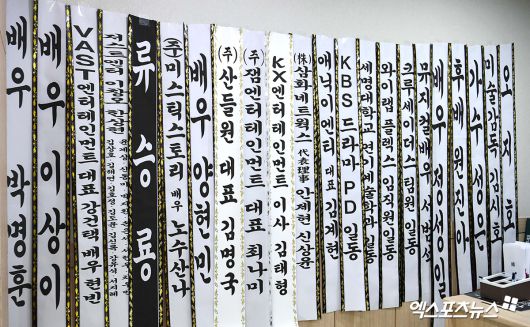 배우 박명훈
배우 이상이
VAST엔터테인먼트 대표 강건택 배우 현빈
저스트엔터
류승룡
㈜미스틱스토리 배우 노수산나
배우 양현민
(주)산들원 대표 김명국
(주)잼엔터테인먼트 대표 최나미
KX엔터테인먼트 이사 김태형
(株)삼화네트웍스 代表理事 안제현 신상윤
애닉이엔티 대표 김계현
KBS 드라마 PD 일동
세명대학교 연기예술학과 일동
와이랩 플렉스 임직원 일동
크루세이더스 팀원 일동
뮤지컬배우 서범석
배우 정성일
후배 원진아
가수 성은
미술감독 김시호
오지호
엑스포츠뉴스